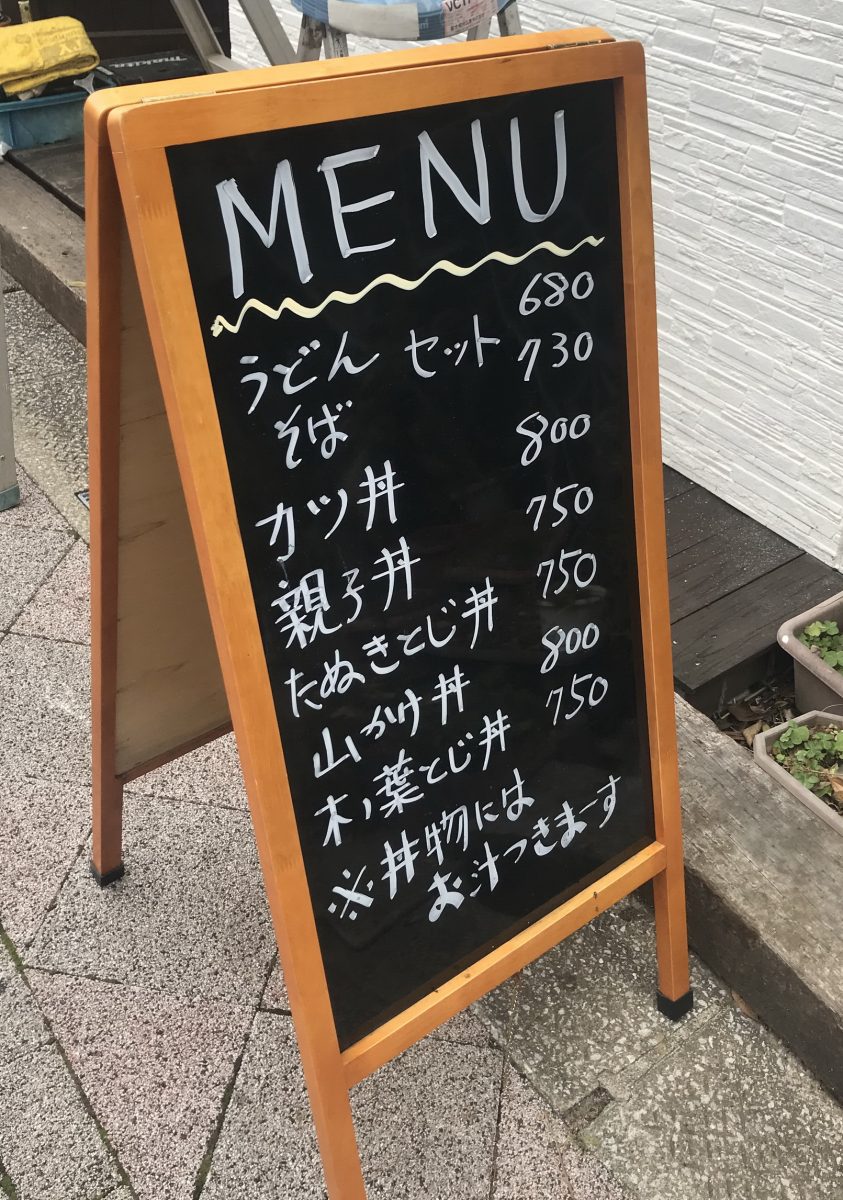 MENU
うどん セット 680
そば 730
カツ丼 800
親子丼 750
たぬきとじ丼 750
山かけ丼 800
木ノ葉とじ丼 750
※丼物には
お汁つきまーす
makita